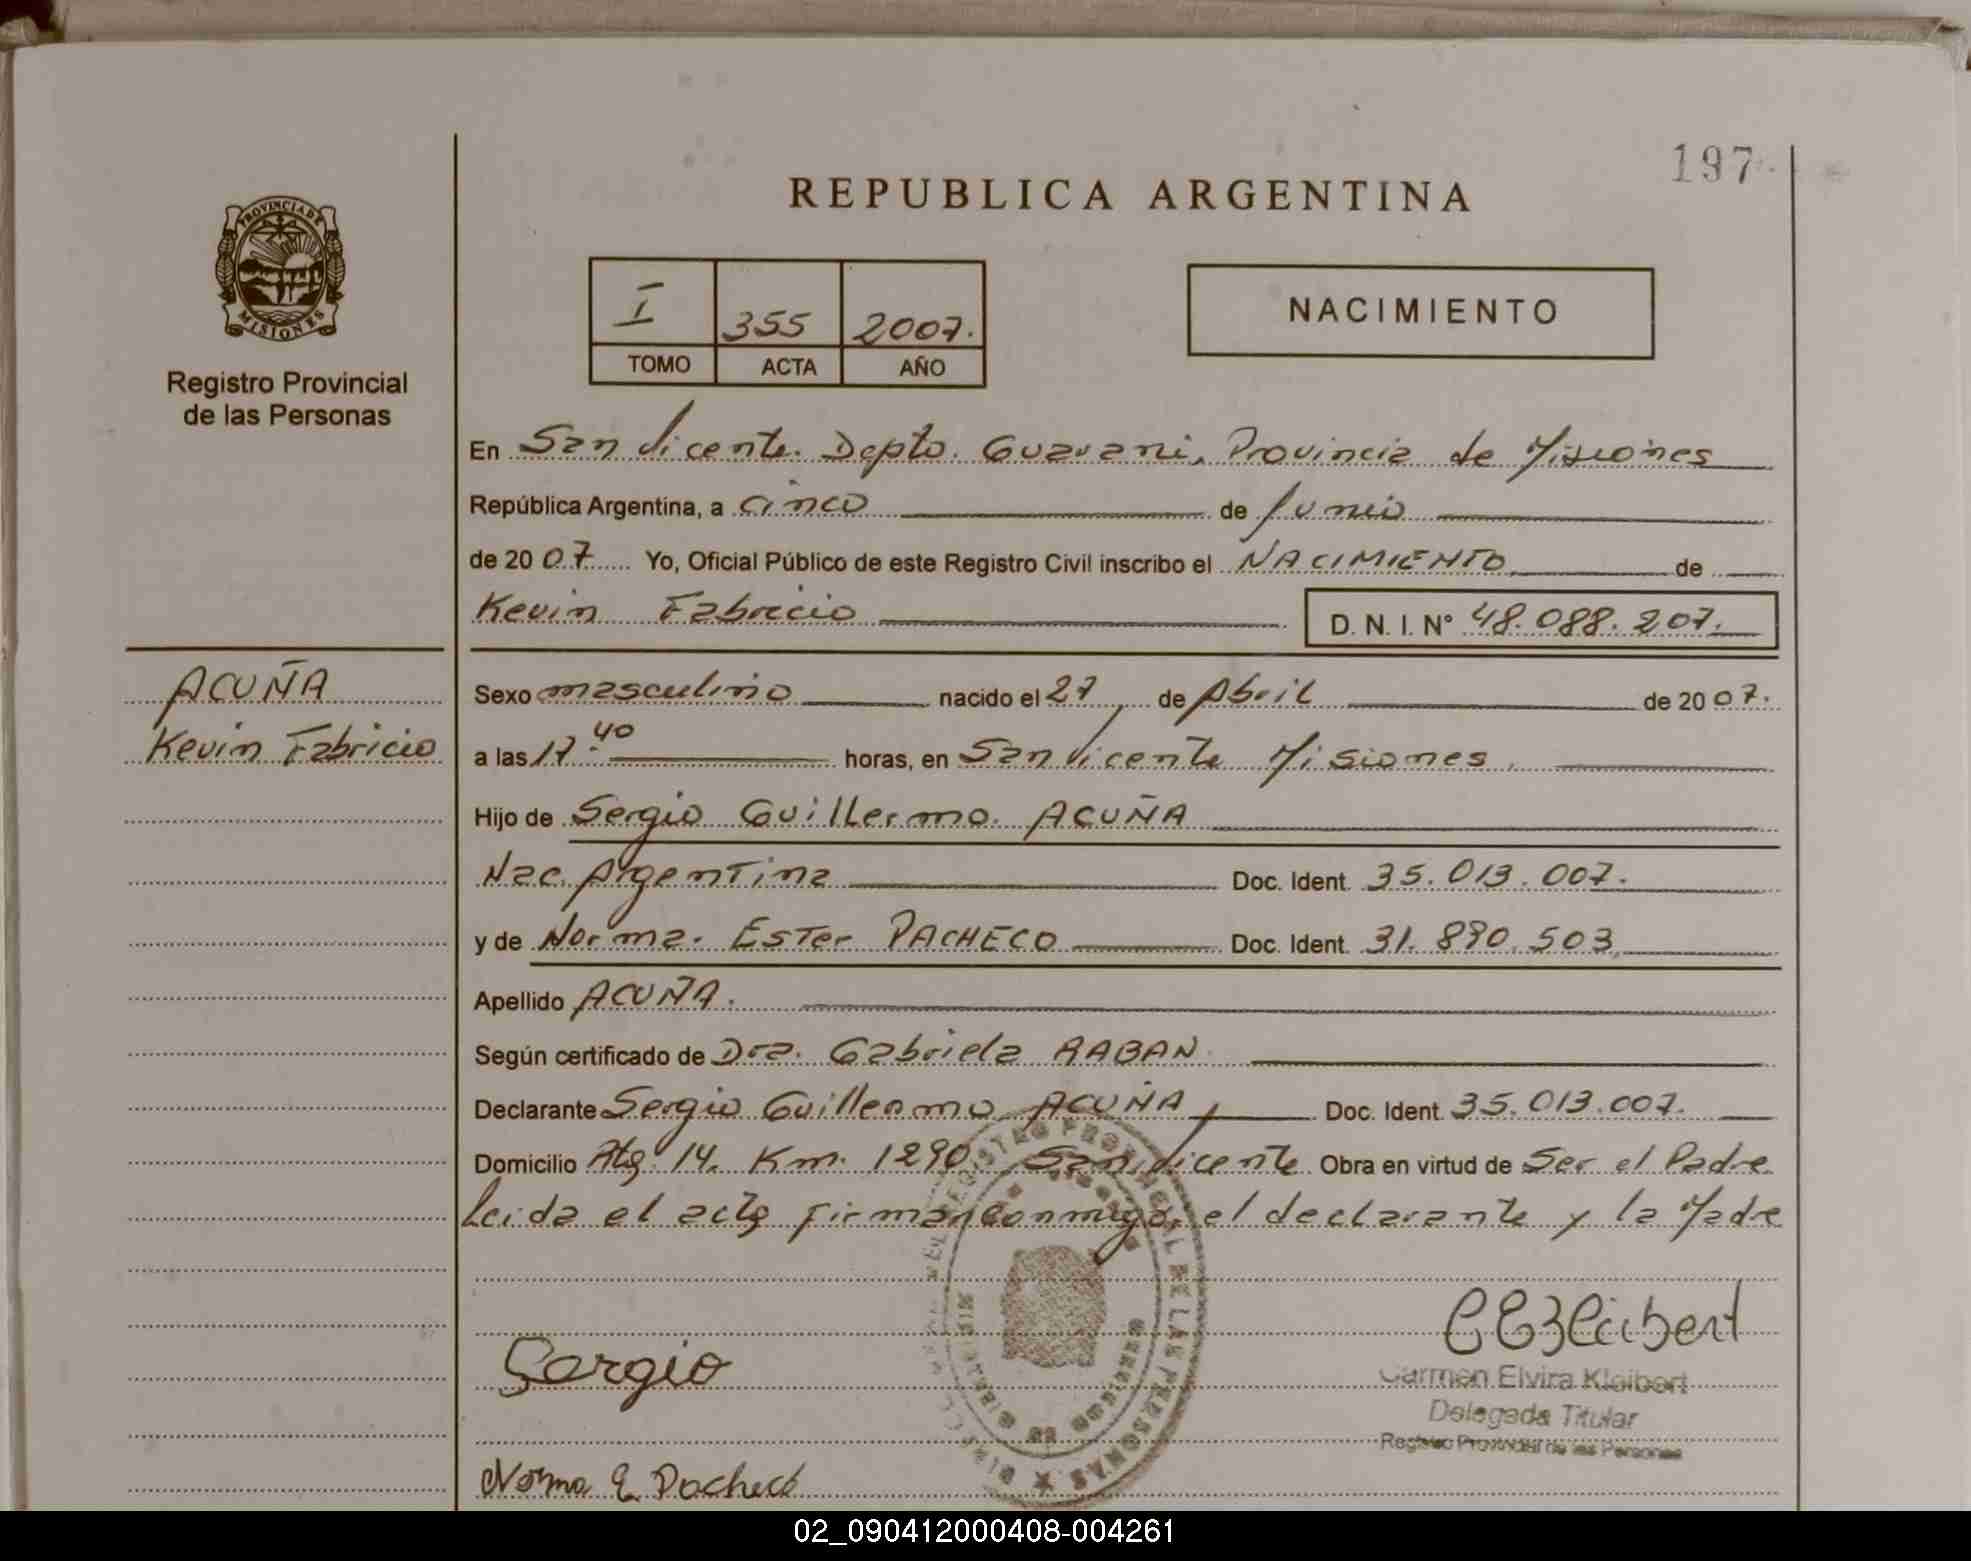 197
REPUBLICA ARGENTINA
PROVINCIA DE
MISIONES
Registro Provincial
de las Personas
I 355 2007.
TOMO ACTA AÑO
NACIMIENTO
En San Vicente. Dpto. Guarani, Provincia de Misiones
República Argentina, a cinco de Junio
de 2007 Yo, Oficial Público de este Registro Civil inscribo el NACIMIENTO de
Kevin Fabricio D. N. I. N° 48.088.207.
ACUÑA
Kevin Fabricio
Sexo masculino nacido el 27 de Abril de 2007.
a las 17.40 horas, en San Vicente Misiones.
Hijo de Sergio Guillermo. ACUÑA
Nac. Argentina Doc. Ident. 35.013.007.
y de Norma. Ester PACHECO Doc. Ident. 31.890.503
Apellido ACUÑA.
Según certificado de Dra. Gabriela RABAN
Declarante Sergio Guillermo ACUÑA Doc. Ident. 35.013.007.
Domicilio 14. Km. 1290. San Vicente Obra en virtud de Ser el Padre
Leida el acta firman conmigo, el declarante y la Madre
REGISTRO PROVINCIAL DE LAS PERSONAS
Sergio
Carmen Elvira Kleibert
Delegada Titular
Registro Provincial de las Personas
Norma E. Pacheco
02_090412000408-004261